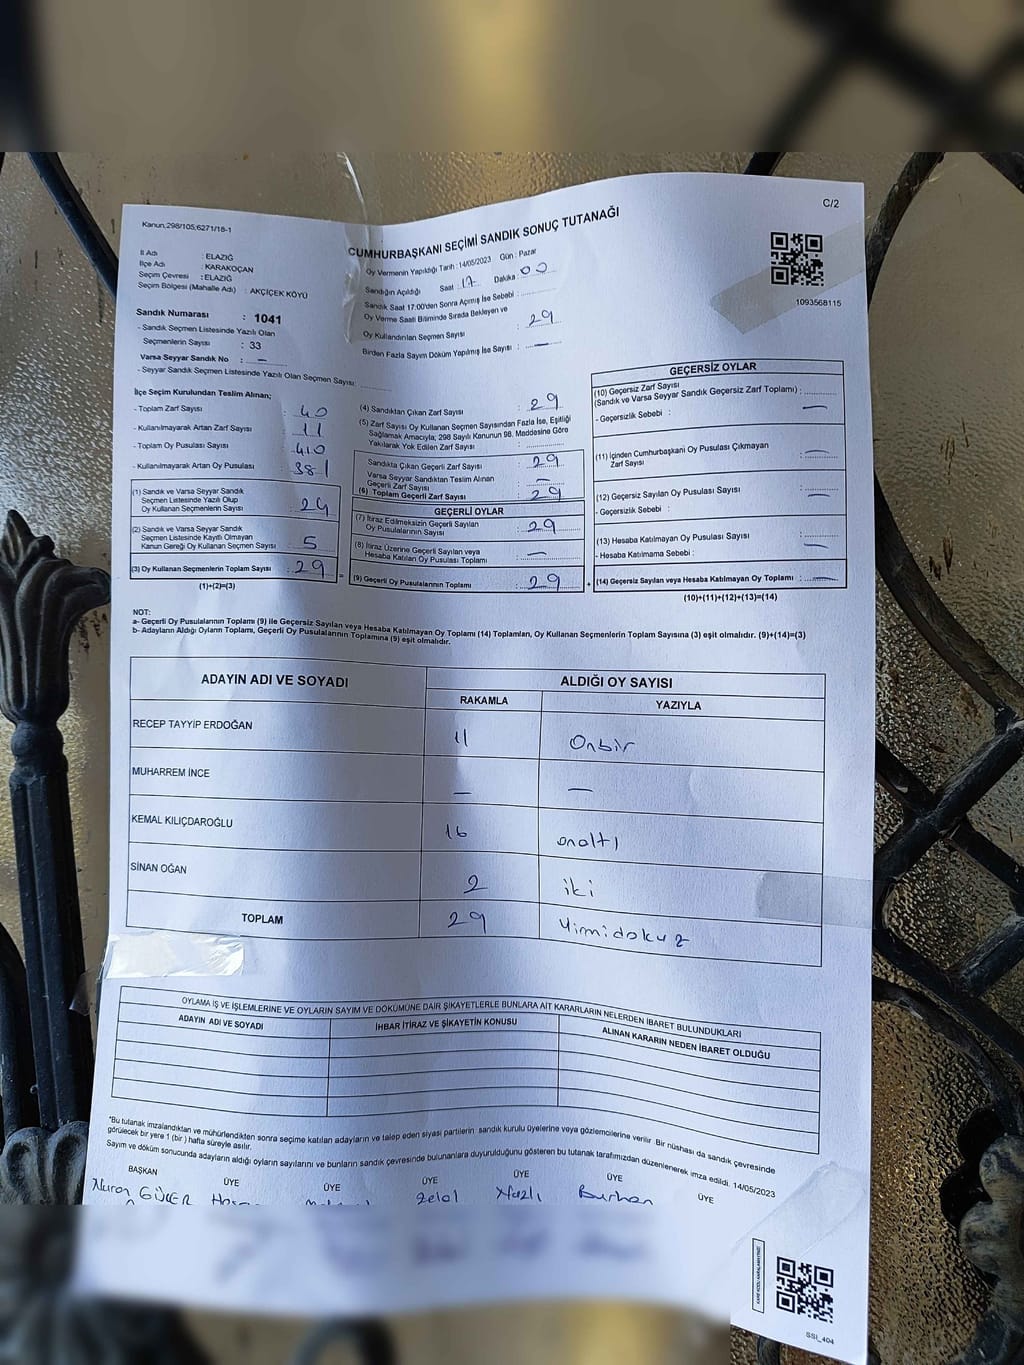 C/2
Kanun,298/105,6271/18-1
CUMHURBAŞKANI SEÇİMİ SANDIK SONUÇ TUTANAĞI
İl Adı : ELAZIĞ
İlçe Adı : KARAKOÇAN
Seçim Çevresi : ELAZIĞ
Seçim Bölgesi (Mahalle Adı) : AKÇİÇEK KÖYÜ
Oy Vermenin Yapıldığı Tarih :14/05/2023 Gün : Pazar
Sandığın Açıldığı Saat :17 Dakika :00
Sandık Saat 17:00'den Sonra Açmış İse Sebebi :
Oy Verme Saati Bitiminde Sırada Bekleyen ve
Oy Kullandırılan Seçmen Sayısı : 29
Birden Fazla Sayım Döküm Yapılmış İse Sayısı : —
1093568115
Sandık Numarası : 1041
- Sandık Seçmen Listesinde Yazılı Olan
Seçmenlerin Sayısı : 33
Varsa Seyyar Sandık No : —
- Seyyar Sandık Seçmen Listesinde Yazılı Olan Seçmen Sayısı :
İlçe Seçim Kurulundan Teslim Alınan;
- Toplam Zarf Sayısı : 40
- Kullanılmayarak Artan Zarf Sayısı : 11
- Toplam Oy Pusulası Sayısı : 410
- Kullanılmayarak Artan Oy Pusulası : 381
(1) Sandık ve Varsa Seyyar Sandık
Seçmen Listesinde Yazılı Olup
Oy Kullanan Seçmenlerin Sayısı : 24
(2) Sandık ve Varsa Seyyar Sandık
Seçmen Listesinde Kayıtlı Olmayan
Kanun Gereği Oy Kullanan Seçmen Sayısı : 5
(3) Oy Kullanan Seçmenlerin Toplam Sayısı : 29
(1)+(2)=(3)
(4) Sandıktan Çıkan Zarf Sayısı : 29
(5) Zarf Sayısı Oy Kullanan Seçmen Sayısından Fazla İse, Eşitliği
Sağlamak Amacıyla; 298 Sayılı Kanunun 98. Maddesine Göre
Yakılarak Yok Edilen Zarf Sayısı :
Sandıkta Çıkan Geçerli Zarf Sayısı : 29
Varsa Seyyar Sandıktan Teslim Alınan
Geçerli Zarf Sayısı : —
(6) Toplam Geçerli Zarf Sayısı : 29
GEÇERLİ OYLAR
(7) İtiraz Edilmeksizin Geçerli Sayılan
Oy Pusulalarının Sayısı : 29
(8) İtiraz Üzerine Geçerli Sayılan veya
Hesaba Katılan Oy Pusulası Toplamı : —
= (9) Geçerli Oy Pusulalarının Toplamı : 29
GEÇERSİZ OYLAR
(10) Geçersiz Zarf Sayısı
(Sandık ve Varsa Seyyar Sandık Geçersiz Zarf Toplamı) : —
- Geçersizlik Sebebi :
(11) İçinden Cumhurbaşkanı Oy Pusulası Çıkmayan
Zarf Sayısı : —
(12) Geçersiz Sayılan Oy Pusulası Sayısı : —
- Geçersizlik Sebebi :
(13) Hesaba Katılmayan Oy Pusulası Sayısı : —
- Hesaba Katılmama Sebebi :
+ (14) Geçersiz Sayılan veya Hesaba Katılmayan Oy Toplamı : —
(10)+(11)+(12)+(13)=(14)
NOT:
a- Geçerli Oy Pusulalarının Toplamı (9) ile Geçersiz Sayılan veya Hesaba Katılmayan Oy Toplamı (14) Toplamları, Oy Kullanan Seçmenlerin Toplam Sayısına (3) eşit olmalıdır. (9)+(14)=(3)
b- Adayların Aldığı Oyların Toplamı, Geçerli Oy Pusulalarının Toplamına (9) eşit olmalıdır.
ADAYIN ADI VE SOYADI ALDIĞI OY SAYISI
RAKAMLA YAZIYLA
RECEP TAYYİP ERDOĞAN 11 Onbir
MUHARREM İNCE — —
KEMAL KILIÇDAROĞLU 16 onaltı
SİNAN OĞAN 2 iki
TOPLAM 29 Yirmidokuz
OYLAMA İŞ VE İŞLEMLERİNE VE OYLARIN SAYIM VE DÖKÜMÜNE DAİR ŞİKAYETLERLE BUNLARA AİT KARARLARIN NELERDEN İBARET BULUNDUKLARI
ADAYIN ADI VE SOYADI İHBAR İTİRAZ VE ŞİKAYETİN KONUSU ALINAN KARARIN NEDEN İBARET OLDUĞU
*Bu tutanak imzalandıktan ve mühürlendikten sonra seçime katılan adayların ve talep eden siyasi partilerin sandık kurulu üyelerine veya gözlemcilerine verilir. Bir nüshası da sandık çevresinde
görülecek bir yere 1 (bir) hafta süreyle asılır.
Sayım ve döküm sonucunda adayların aldığı oyların sayılarını ve bunların sandık çevresinde bulunanlara duyurulduğunu gösteren bu tutanak tarafımızdan düzenlenerek imza edildi. 14/05/2023
BAŞKAN ÜYE ÜYE ÜYE ÜYE ÜYE ÜYE
GÜLER Zelal Nazlı Burhan
SSI_404